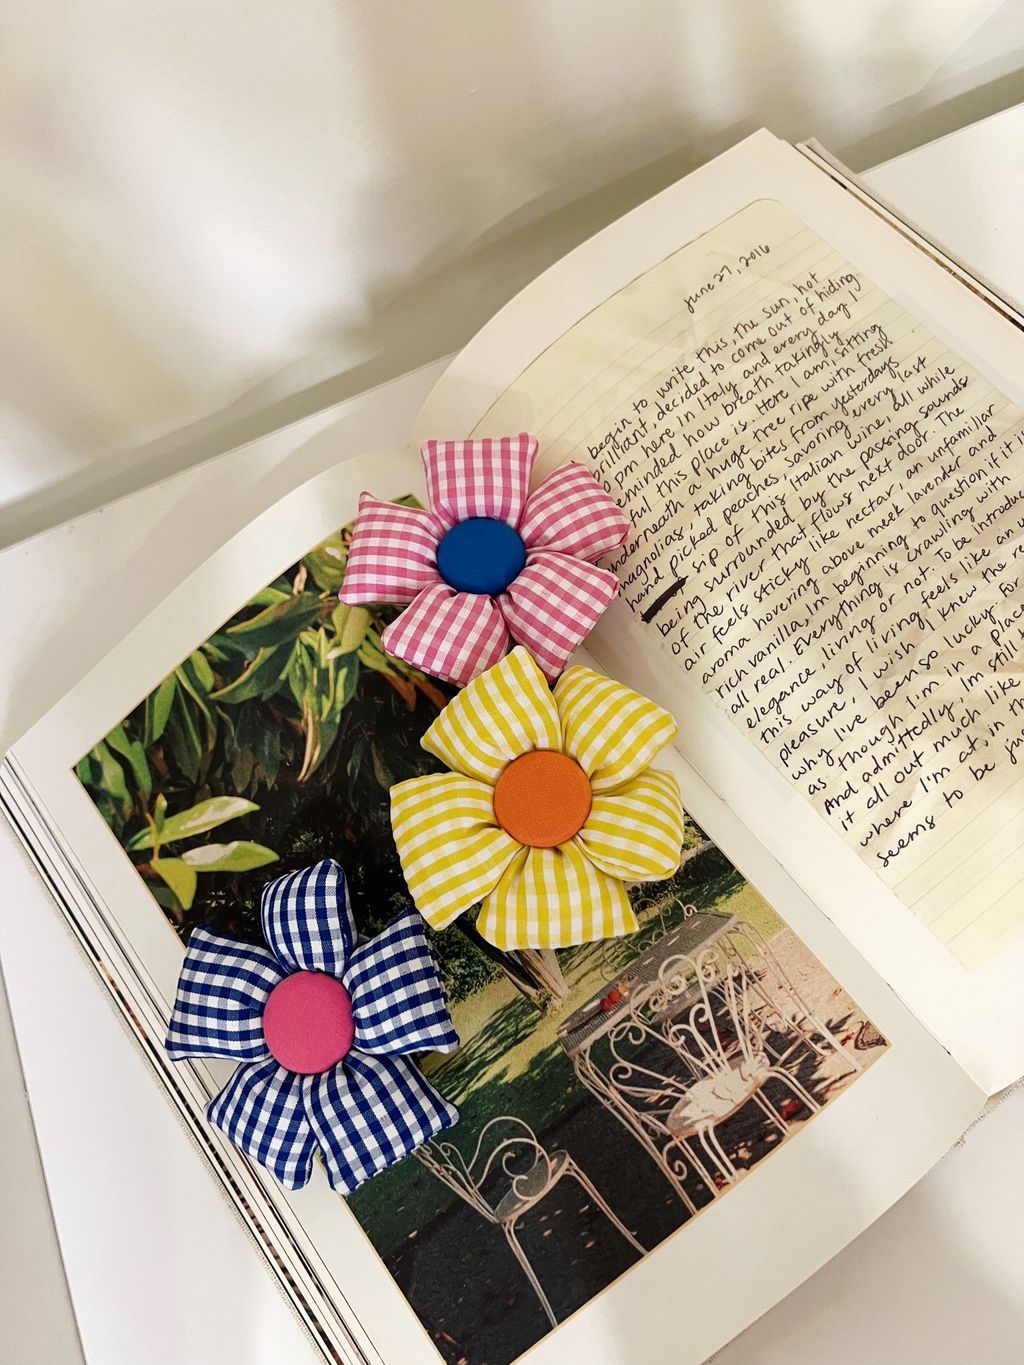 june 27, 2016
begin to write this, the sun, hot
brilliant, decided to come out of hiding.
pm here in Italy and every day I
reminded how breath takingly
ful this place is. Here I am, sitting
nderneath a huge tree ripe with fresh
magnolias, taking bites from yesterdays
hand picked peaches, savoring every last
sip of this Italian wine, all while
being surrounded by the passing sounds
of the river that flows next door. The
air feels sticky like nectar, an unfamiliar
aroma hovering above meek lavender and
rich vanilla, Im beginning to question if it i
all real. Everything is crawling with
elegance, living or not. To be introduc
this way of living feels like an u
pleasure, I wish I knew the re
why Ive been so lucky. For
as though I'm in a place
And admittedly, I'm still t
it all out much like
where I'm at, in th
seems to be jus